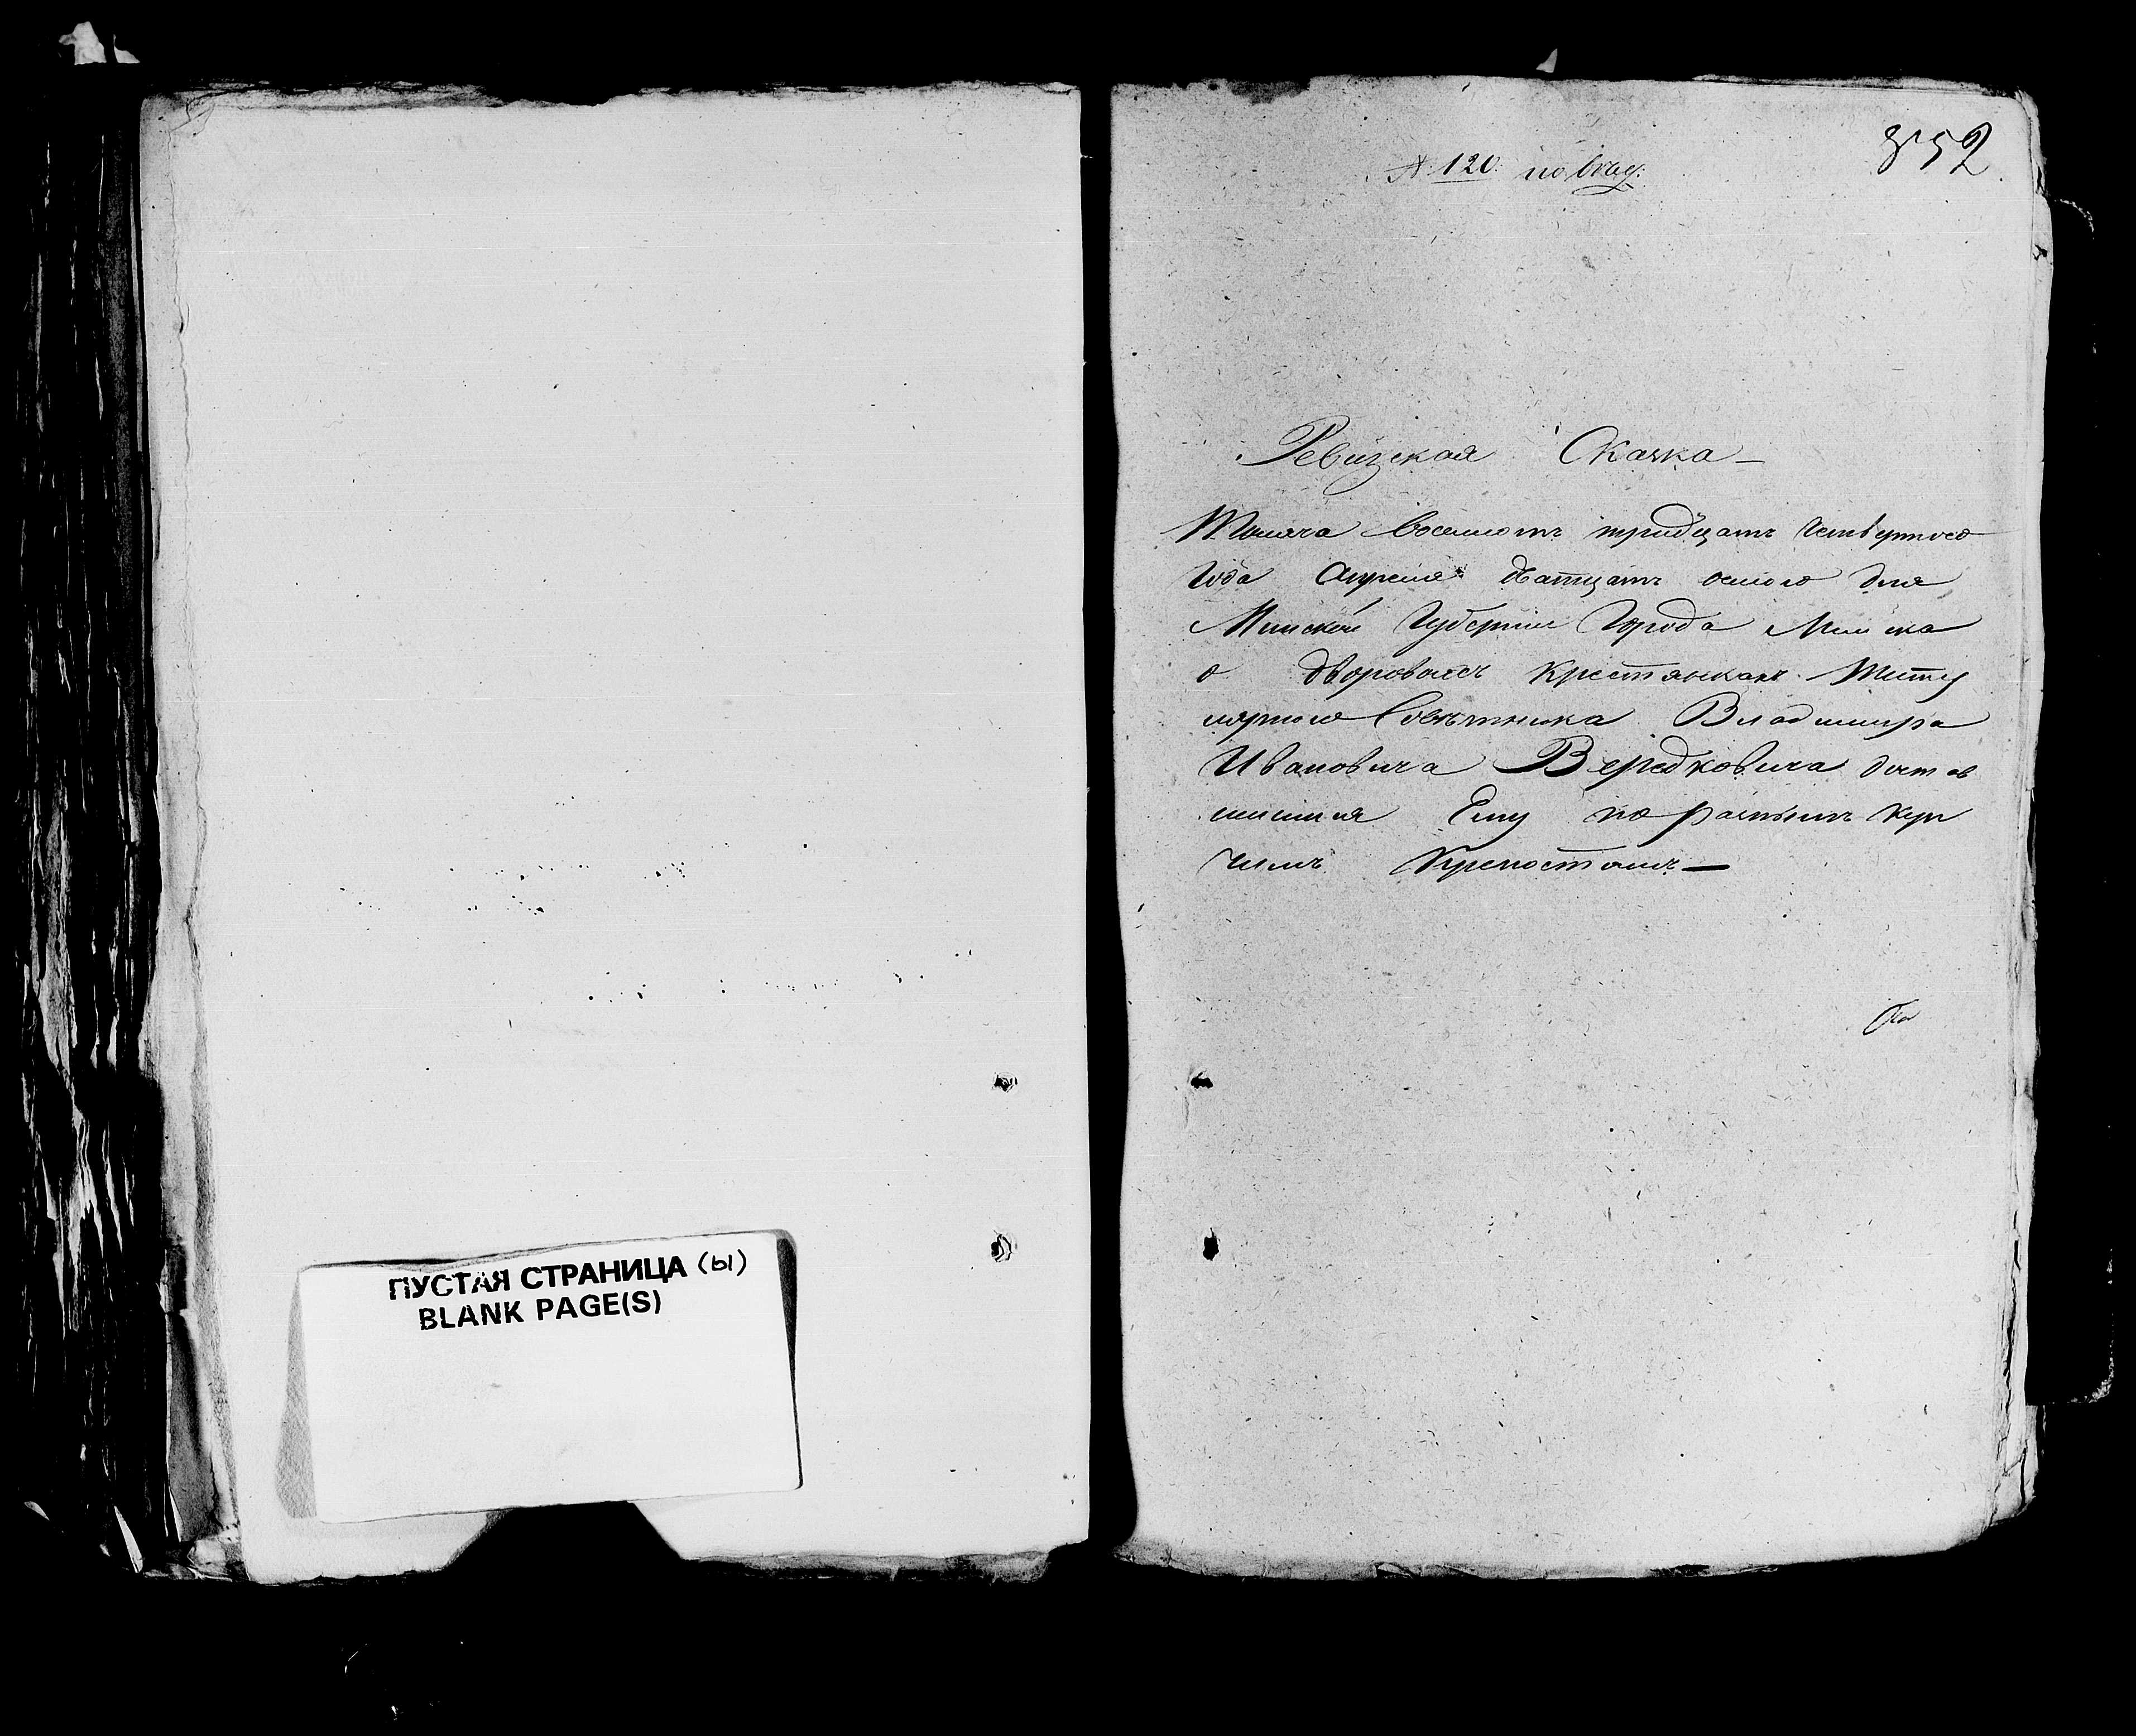 ПУСТАЯ СТРАНИЦА (ы)
BLANK PAGE(S)
852
№ 120. по
Ревизская Скаска
Тысяча восемсотъ тридцать Четвертого
Года Апреля дватцать осмого дня
Минской Губернии Города Минска
о дворовыхъ крестянкахъ Титу
лярного Советника Владимира
Ивановича Вередковича достав
шихся Ему по разнымъ куп
чимъ Крепостямъ